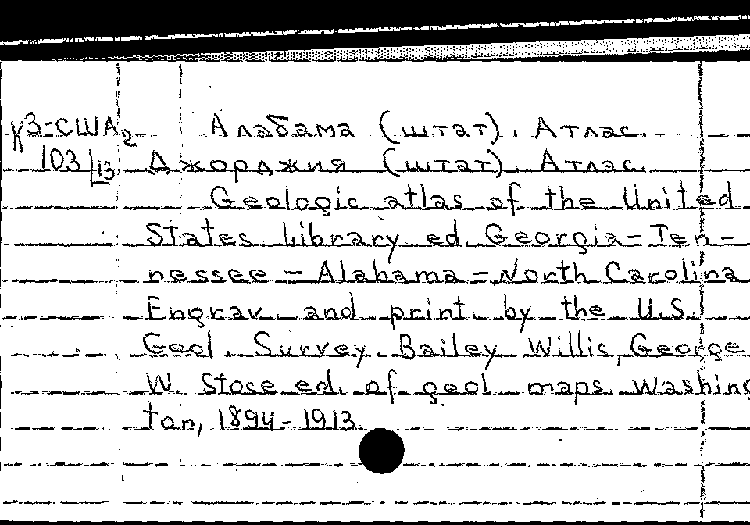 К3-США2 Алабама (штат). Атлас.
103/13 Джорджия (штат). Атлас.
Geologic atlas of the United
States. Library ed. Georgia-Ten-
nessee - Alabama - North Carolina
Engrav. and print. by the U.S.
Geol. Survey. Bailey Willis, George
W. Stose ed. of geol maps. Washing
ton, 1894-1913.